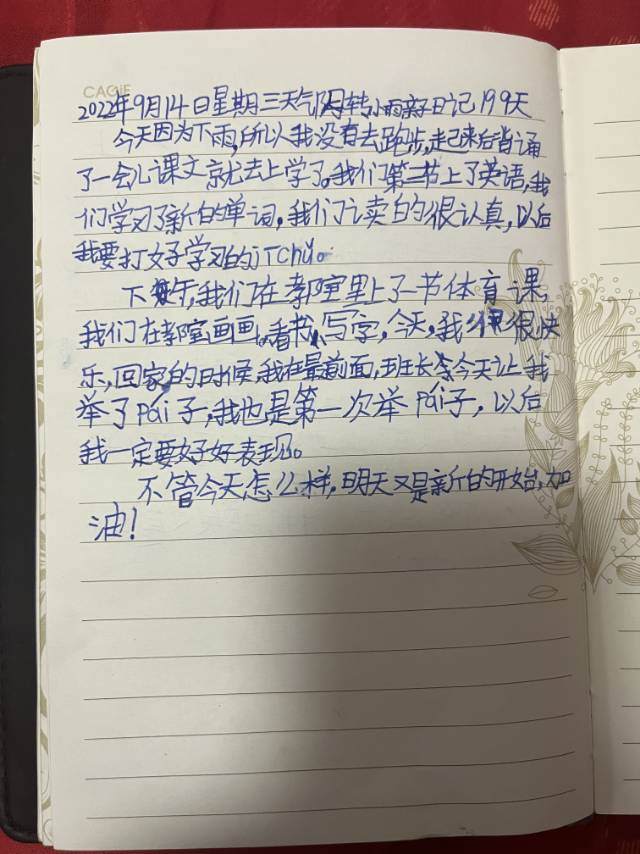 CAGIE
2022年9月14日星期三天气阴转小雨亲子日记199天
今天因为下雨,所以我没有去跑步,起来后背诵
了一会儿课文就去上学了。我们第二节上了英语,我
们学习了新的单词,我们读的很认真,以后
我要打好学习的jīchǔ。
下午,我们在教室里上了一节体育课,
我们在教室画画、看书、写字,今天,我很快
乐,回家的时候,我在最前面,班长今天让我
举了pái子,我也是第一次举pái子,以后
我一定要好好表现。
不管今天怎么样,明天又是新的开始,加
油!